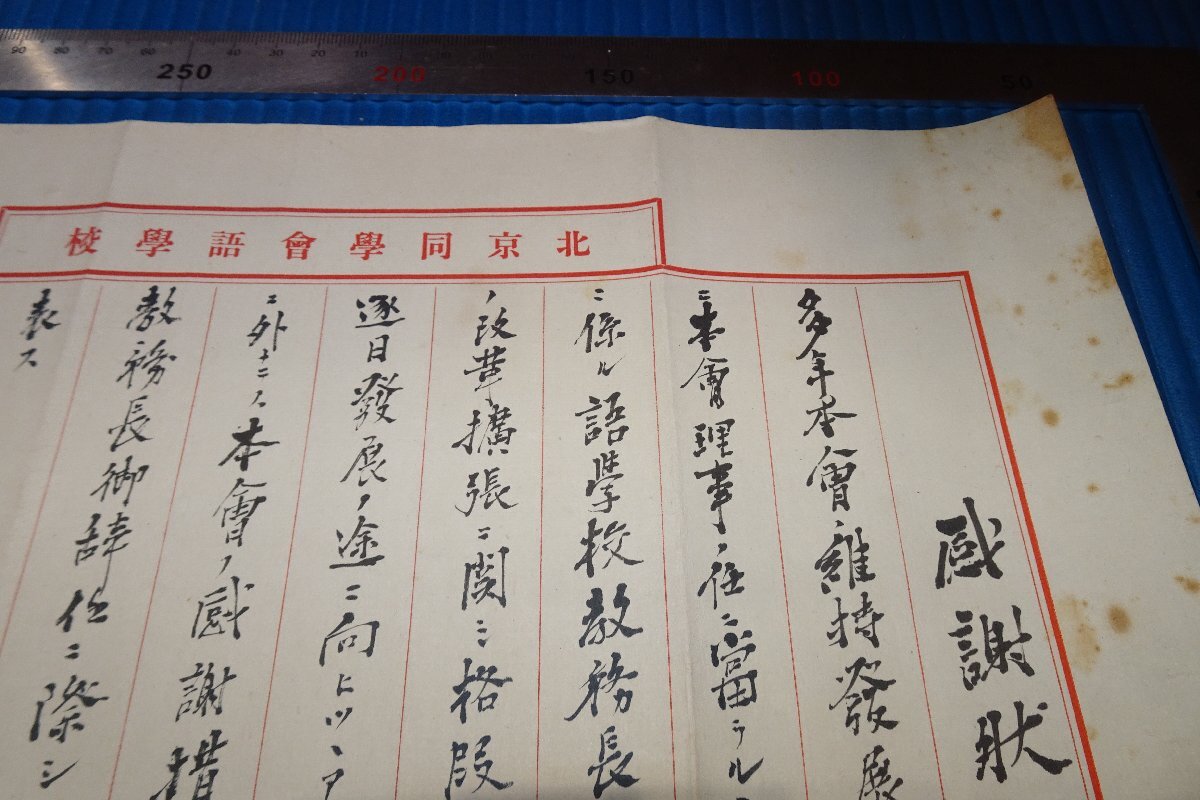 90 80 70 60 40 30 20 10
250 200 150 100 50
北京同學會語學校
感謝狀
多年本會ノ維持發展
ニ本會理事ノ任ニ當ラル
ニ係ル語學校教務長
ノ改革擴張ニ関シ格段
逐日發展ノ途ニ向ヒツヽア
ニ外ナニス本會ノ感謝措
教務長御辞任ニ際シ
表ス